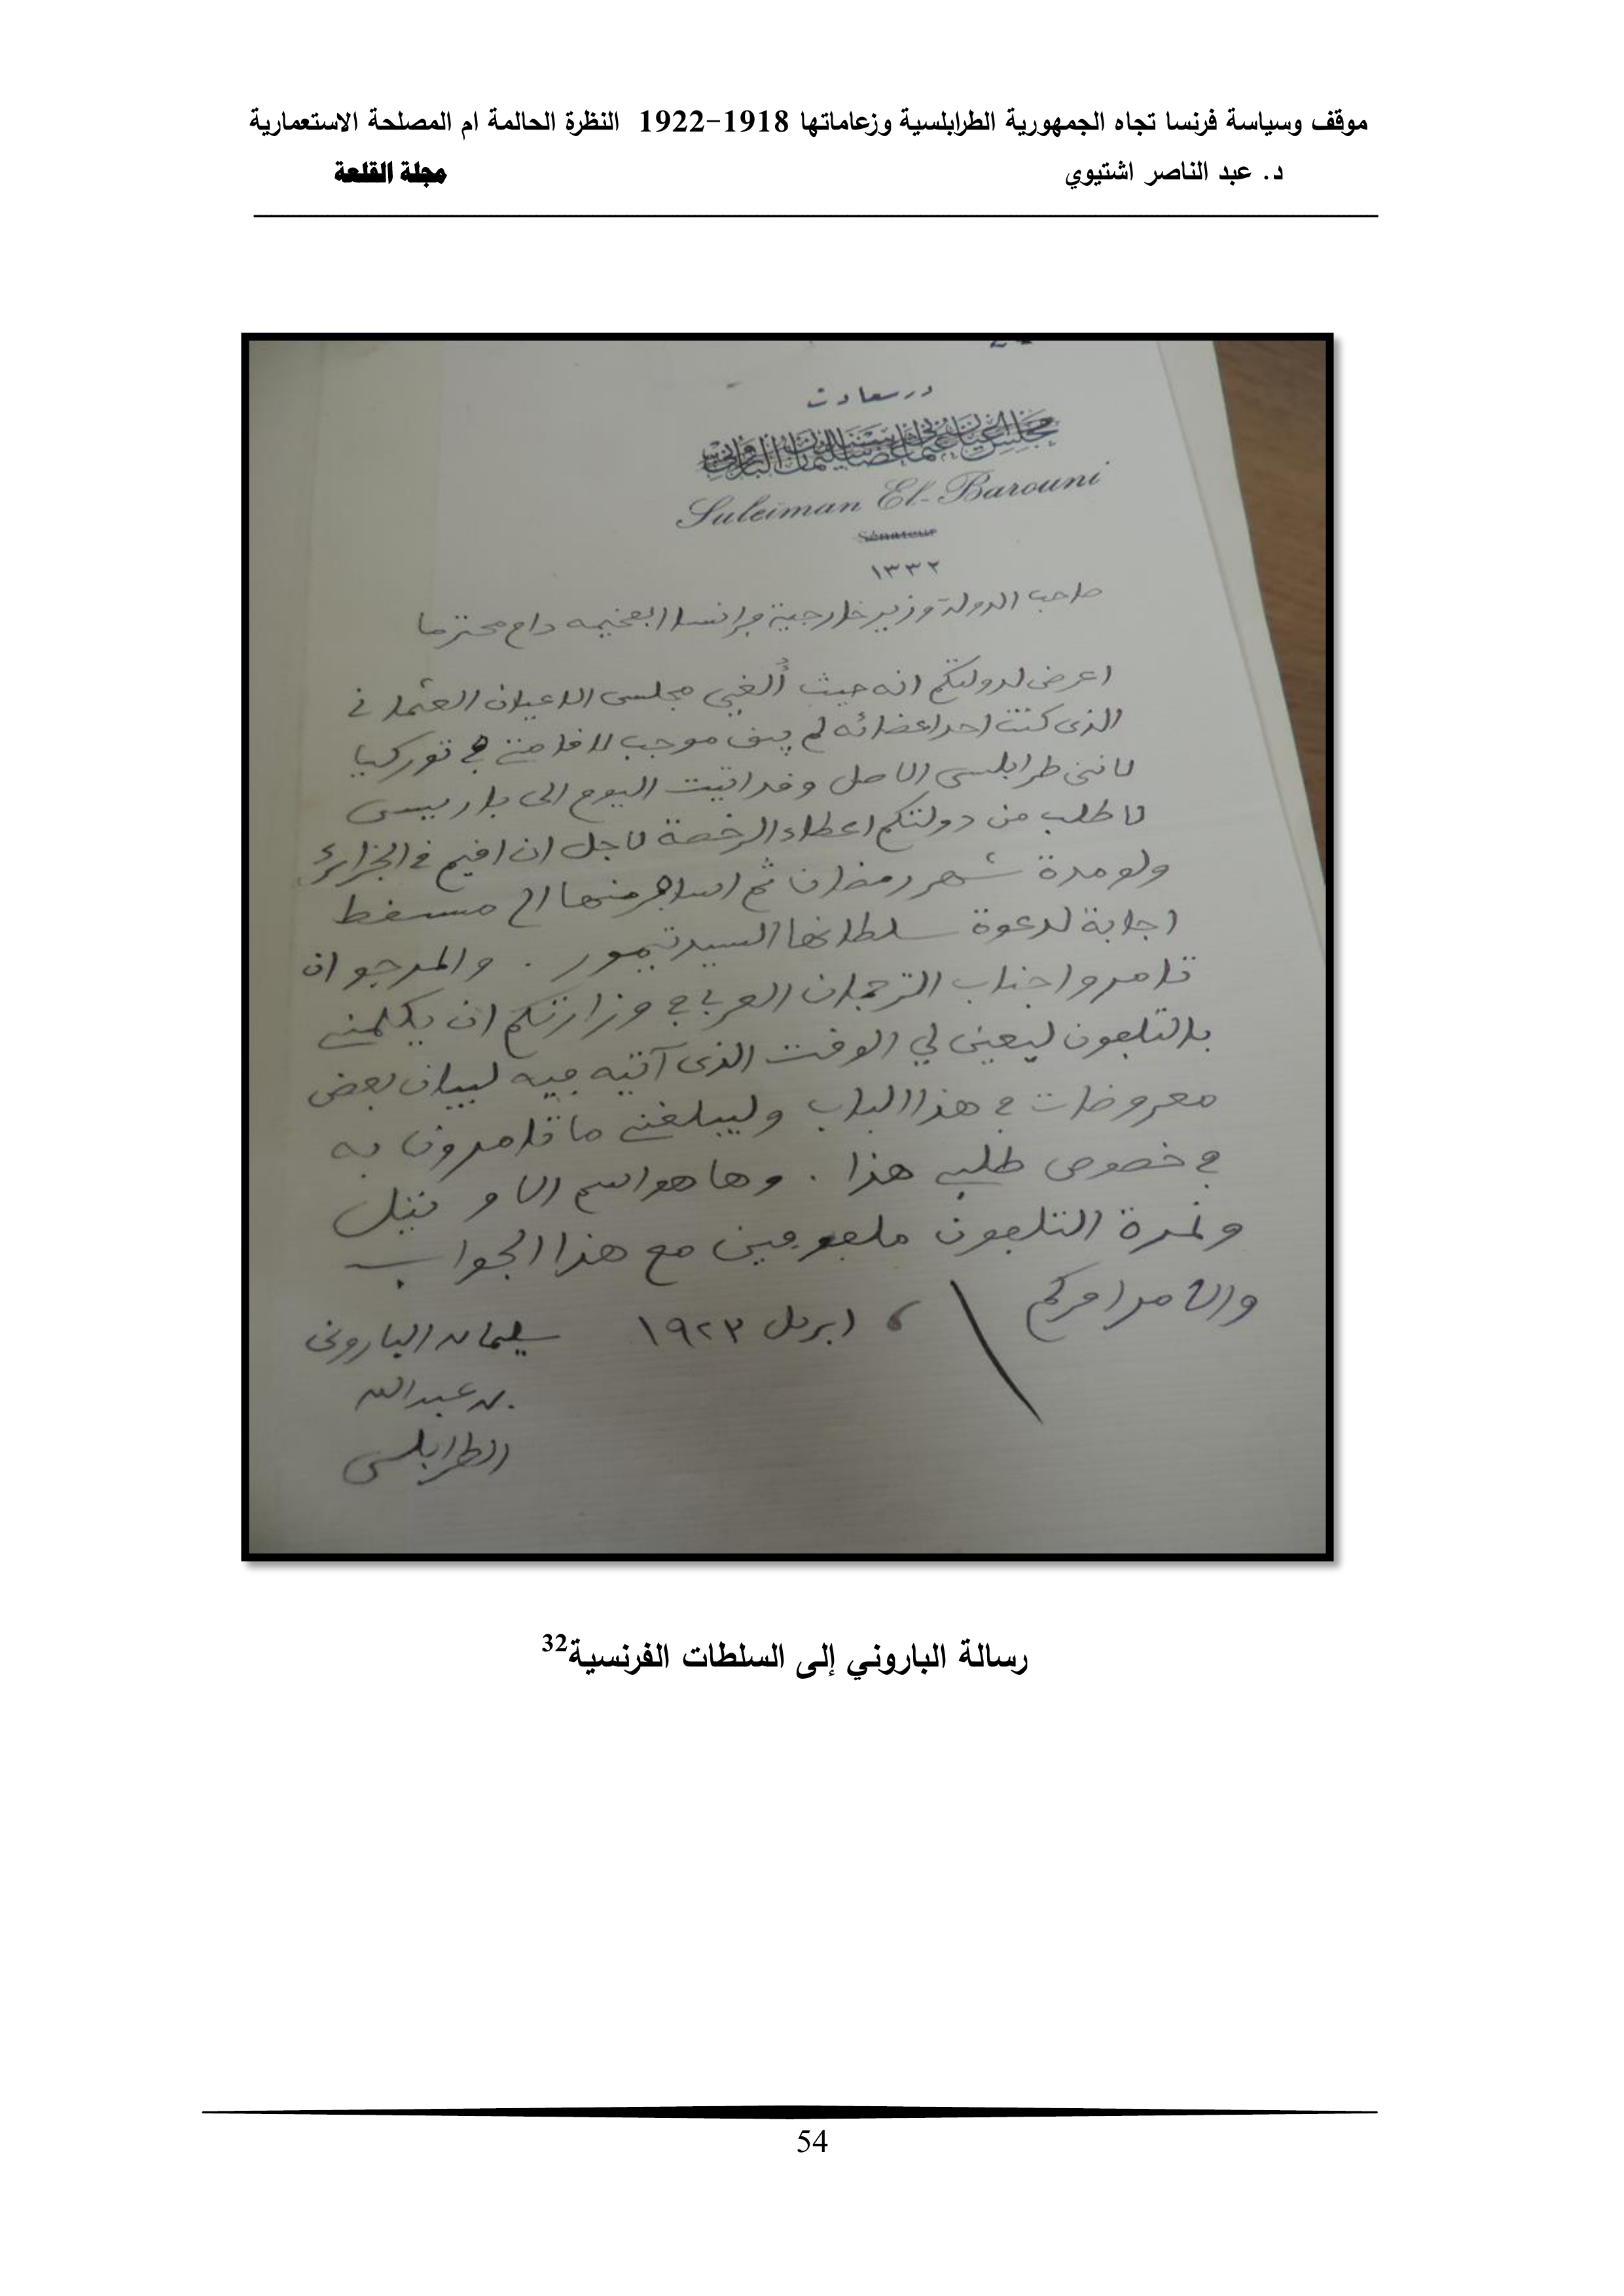 موقف وسياسة فرنسا تجاه الجمهورية الطرابلسية وزعاماتها 1918-1922 النظرة الحالمة ام المصلحة الاستعمارية
د. عبد الناصر اشتيوي مجلة القلعة
درسعادت
مجلس اعيان عثماني اعضاسندن سليمان الباروني
Suleiman El-Barouni
Sénateur
١٣٣٢
صاحب الدولة وزير خارجية فرانسا الفخيمه دام محترما
اعرض لدولتكم انه حيث أُلغي مجلس الاعيان العثماني
الذى كنت احد اعضائه لم يبق موجب لاقامتي في توركيا
لانني طرابلسي الاصل وقد اتيت اليوم الى باريس
لاطلب من دولتكم اعطاء الرخصة لاجل ان اقيم في الجزائر
ولو مدة شهر رمضان ثم اسافر منها الى مسقط
اجابة لدعوة سلطانها السيد تيمور . والمرجو ان
تامروا جناب الترجمان العربي في وزارتكم ان يكلمني
بالتلفون ليعين لي الوقت الذى آتيه فيه لبيان بعض
معروضات في هذا الباب وليبلغني ما تامرون به
في خصوص طلبي هذا . وها هو اسم الاوتيل
ونمرة التلفون ملفوفين مع هذا الجواب
والامر امركم ابريل ١٩٢٣ سليمان الباروني
بن عبدالله
الطرابلسي
رسالة الباروني إلى السلطات الفرنسية32
54